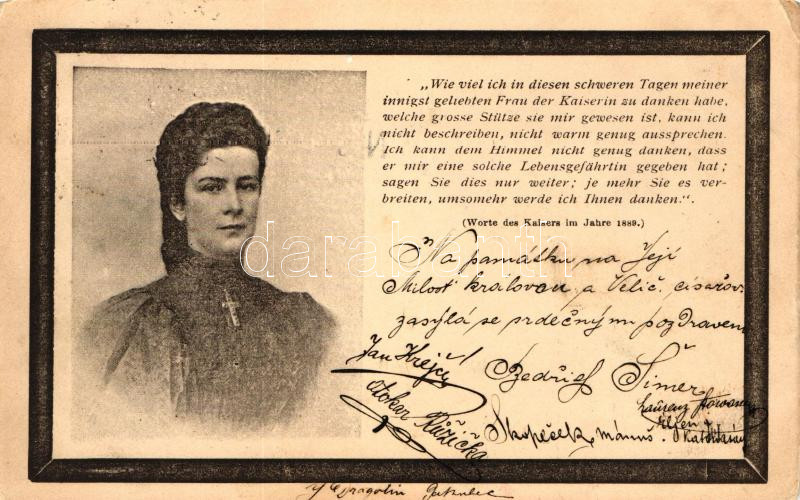 „Wie viel ich in diesen schweren Tagen meiner
innigst geliebten Frau der Kaiserin zu danken habe,
welche grosse Stütze sie mir gewesen ist, kann ich
nicht beschreiben, nicht warm genug aussprechen.
Ich kann dem Himmel nicht genug danken, dass
er mir eine solche Lebensgefährtin gegeben hat;
sagen Sie dies nur weiter; je mehr Sie es ver-
breiten, umsomehr werde ich Ihnen danken.“.
(Worte des Kaisers im Jahre 1889.)
darabanth.com
Na památku na Její
Milost královou a Velič. císařov.
zasýlá se srdečnými pozdravem
Jan Krejčí
Bedřich Šimer
Otokar Růžička
Laurenz
Skopeček